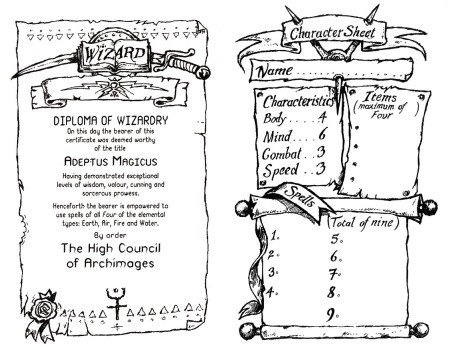 WIZARD
DIPLOMA OF WIZARDRY
On this day the bearer of this
certificate was deemed worthy
of the title
ADEPTUS MAGICUS
Having demonstrated exceptional
levels of wisdom, valour, cunning and
sorcerous prowess.
Henceforth the bearer is empowered to
use spells of all Four of the elemental
types: Earth, Air, Fire and Water.
By order
The High Council
of Archimages
Character Sheet
Name
Characteristics
Body.....4
Mind.....6
Combat..3
Speed...3
Items
(maximum of
Four)
Spells
(Total of nine)
1.
2.
3.
4.
5.
6.
7.
8.
9.